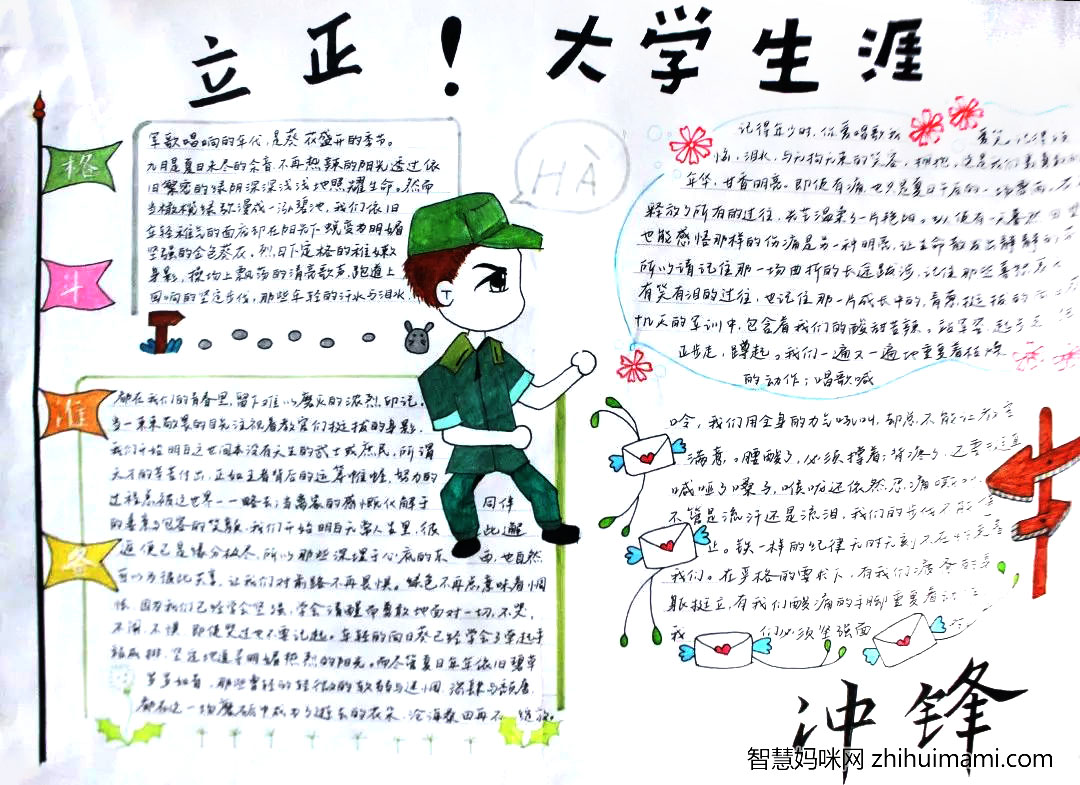 立正！大学生涯
格
斗
准
备
军歌唱响的年代，是葵花盛开的季节。
九月是夏日未尽的余音，不再热辣的阳光透过依
旧繁密的绿荫深深浅浅地照耀生命。然而
当橄榄绿弥漫成一泓碧池，我们依旧
年轻稚气的面庞却在阳光下蜕变为明媚
坚强的金色葵花，烈日下定格的袓
身影，操场上飘荡的清亮歌声，跑道上
回响的坚定步伐，那些年轻的汗水与泪水，
HÀ
都在我们的青春里，留下难以磨灭的浓烈印记。
当一束束敬畏的目光注视着教官们挺拔的身影，
我们开始明白这世间本没有天生的武士或庶民，所谓
天才的辛苦付出，正如王者背后的运筹帷幄，努力的
过程总被这世界一一略去；当离家的感慨化解于
的善意与包容的笑貌，我们开始明白 人生里，很
同伴
此邂
逅便已是缘分极尽，所以那些深埋于心底的东
西，也自然
可以为彼此共享，让我们对前路不再畏惧。绿色不再总意味着惆
怅，因为我们已经学会坚强，学会清醒而勇敢地面对一切，不哭，
不闹，不惧，即使哭过也不要记起。年轻的向日葵已经学会了牵起手
站成排，坚定地追寻明媚热烈的阳光。而尽管夏日年年依旧碧草
萋萋如昔，那些曾轻的轻微的软弱与迷惘，深肆与颓唐，
都在这一场磨砺中成为了逝去的花朵，沧海桑田再不
绽放。
记得年少时，你爱唱歌我
爱笑，记得
恼，泪水，与无拘无束的笑容，拥抱，
年华，甘香明亮。即便有痛也只是夏日午后的一场雷雨，
释放了所有的过往，
也能感悟那样的伤痛是另一种明亮，让生命散发出静静的
所以请记住那一场曲折的长途跋涉，记住那些喜怒哀
有笑有泪的过往，也记住那一片成长中的，青葱挺拔的
十几天的军训中，包含着我们的酸甜苦辣。站军姿，起步走
正步走，蹲起。我们一遍又一遍地重复着枯燥
的动作；唱歌喊
口令，我们用全身的力气吼叫，却总不能让教官
满意。腰酸了，必须撑着；背疼了，还要
喊哑了嗓子，喉咙还依然忍痛
不管是流汗还是流泪，我们的步伐不能
止。铁一样的纪律无时无刻不在
我们。在严格的要求下，有我们疲惫的
躯挺立，有我们酸痛的手脚重复着
我
们必须坚强面
冲锋
智慧妈咪网 zhihuimami.com